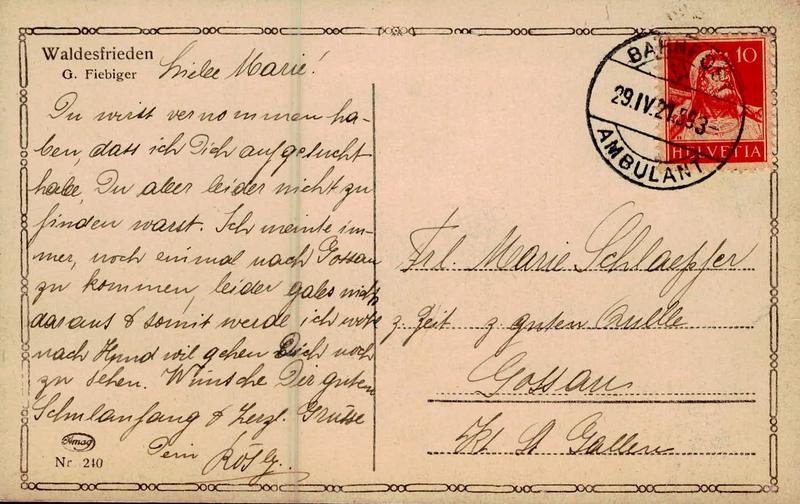 Waldesfrieden
G. Fiebiger
Liebe Marie!
Du wirst vernommen ha-
ben, dass ich Dich aufgesucht
habe, Du aber leider nicht zu
finden warst. Ich meinte im-
mer, noch einmal nach Gossau
zu kommen, leider gabs nichts
daraus & somit werde ich wohl
nach Hundwil gehen Dich noch
zu sehen. Wünsche Dir guten
Schulanfang & herzl. Grüsse
Dein
Amag
Nr. 240
10
HELVETIA
29.IV.21
AMBULANT
Frl. Marie Schlaepfer
z. Zeit z. guten Quelle
Gossau
Kt St Gallen